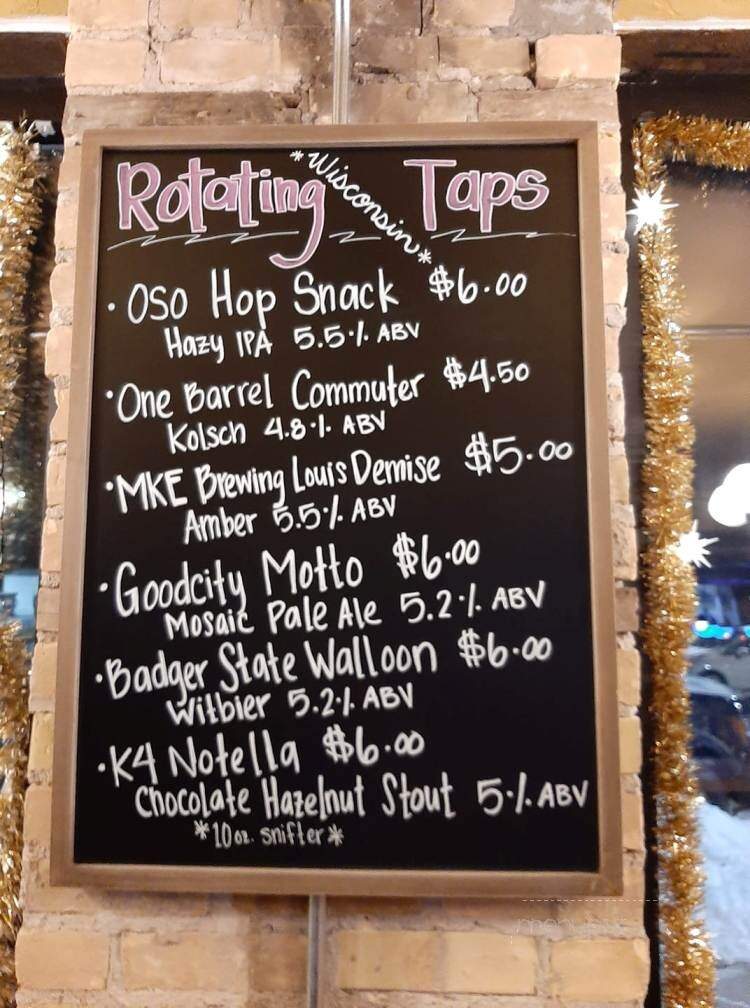 Rotating *Wisconsin* Taps
· Oso Hop Snack $6.00
Hazy IPA 5.5% ABV
· One Barrel Commuter $4.50
Kolsch 4.8% ABV
· MKE Brewing Louis Demise $5.00
Amber 5.5% ABV
· Goodcity Motto $6.00
Mosaic Pale Ale 5.2% ABV
· Badger State Walloon $6.00
Witbier 5.2% ABV
· K4 Notella $6.00
Chocolate Hazelnut Stout 5% ABV
*10 oz. snifter*